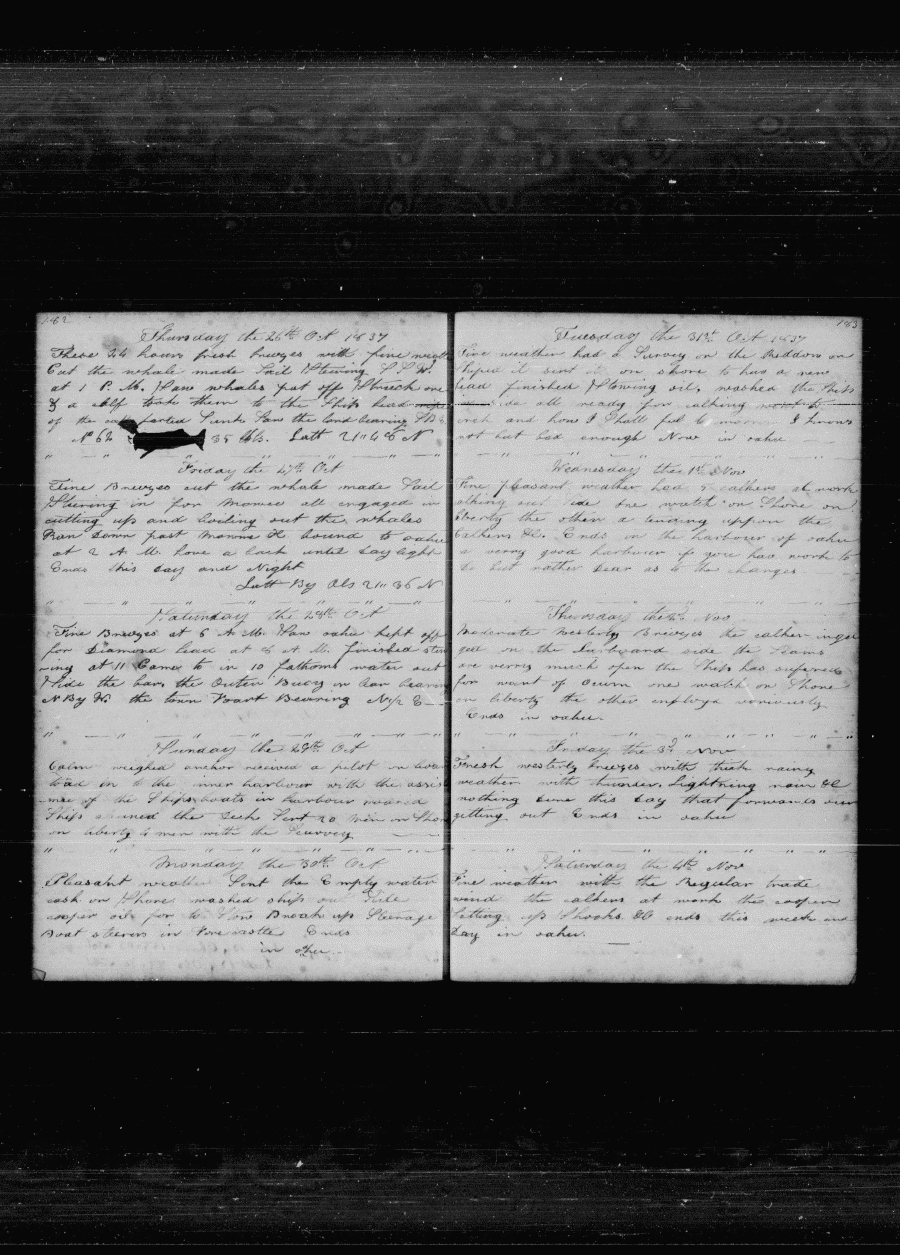 162
Thursday the 26th Oct 1837
These 24 hours fresh breezes with fine weath
Cut the whale made Sail Stering S S W.
at 1 P. M. Saw whales put off Struck one
& a calf took them to the Ships head
of the calf parted Sunk Saw the land bearing
No 62 35 bbls. Latt 21 " 46 N
Friday the 27th Oct
Fine Breezes cut the whale made Sail
Stering in for Mowee all engaged in
cutting up and boiling out the whales
Ran Down past Mowee & bound to oahu
at 2 A M. Love a back until Daylight
Ends this day and Night
Latt By Obs 21 " 36 N
Saturday the 28th Oct
Fine Breezes at 6 A M. Saw oahu kept off
for Diamond head at 8 A M. finished
at 11 Came to in 10 fathoms water out
Side the bar, the Outer Buoy on bar bearin
N By W. the town Foart Bearing N 1/2 E
Sunday the 29th Oct
Calm weighed anchor received a pilot on boar
towd in to the inner harbour with the assis
nce of the Ships boats in harbour moored
Ship the Deck Sent 20 men on Shor
on liberty 2 men with the Scurvey
Monday the 30th Oct
Pleasant weather Sent the Empty water
cask on Shore washed ship out Side
cooper oil for to Stow Broak up Steerage
Boat steerers in Forecastle Ends
in
163
Tuesday the 31st Oct 1837
Fine weather had a Survey on the Rudder on
Shiped it sent it on shore to has a new
head finished Stowing oil. washed the Ship
all ready for calking
inch and how I Shall feel to morrow I know
not but bad enough Now in oahu
Wednesday the 1st Nov
Fine pleasant weather had 5 calkers at work
out side one watch on Shore on
liberty the other a tending uppon the
Calkers &c. Ends in the harbour of oahu
a verry good harbour if you has work to
be but rather Dear as to the charges
Thursday the 2d Nov
Moderate Westerly Breezes the calker ingag
ged on the Larboard side the Seams
are verry much open the Ship has suffered
for want of one watch on Shore
on liberty the other employd variously
Ends in oahu.
Friday the 3d Nov
Fresh westerly breezes with thick rainy
weather with thunder Lightning rain &c
nothing Done this Day that forwards our
gitting out Ends in oahu
Saturday the 4th Nov
Fine weather with the Regular trade
wind the calkers at work the cooper
Setting up Shooks &c ends this week and
Day in oahu.